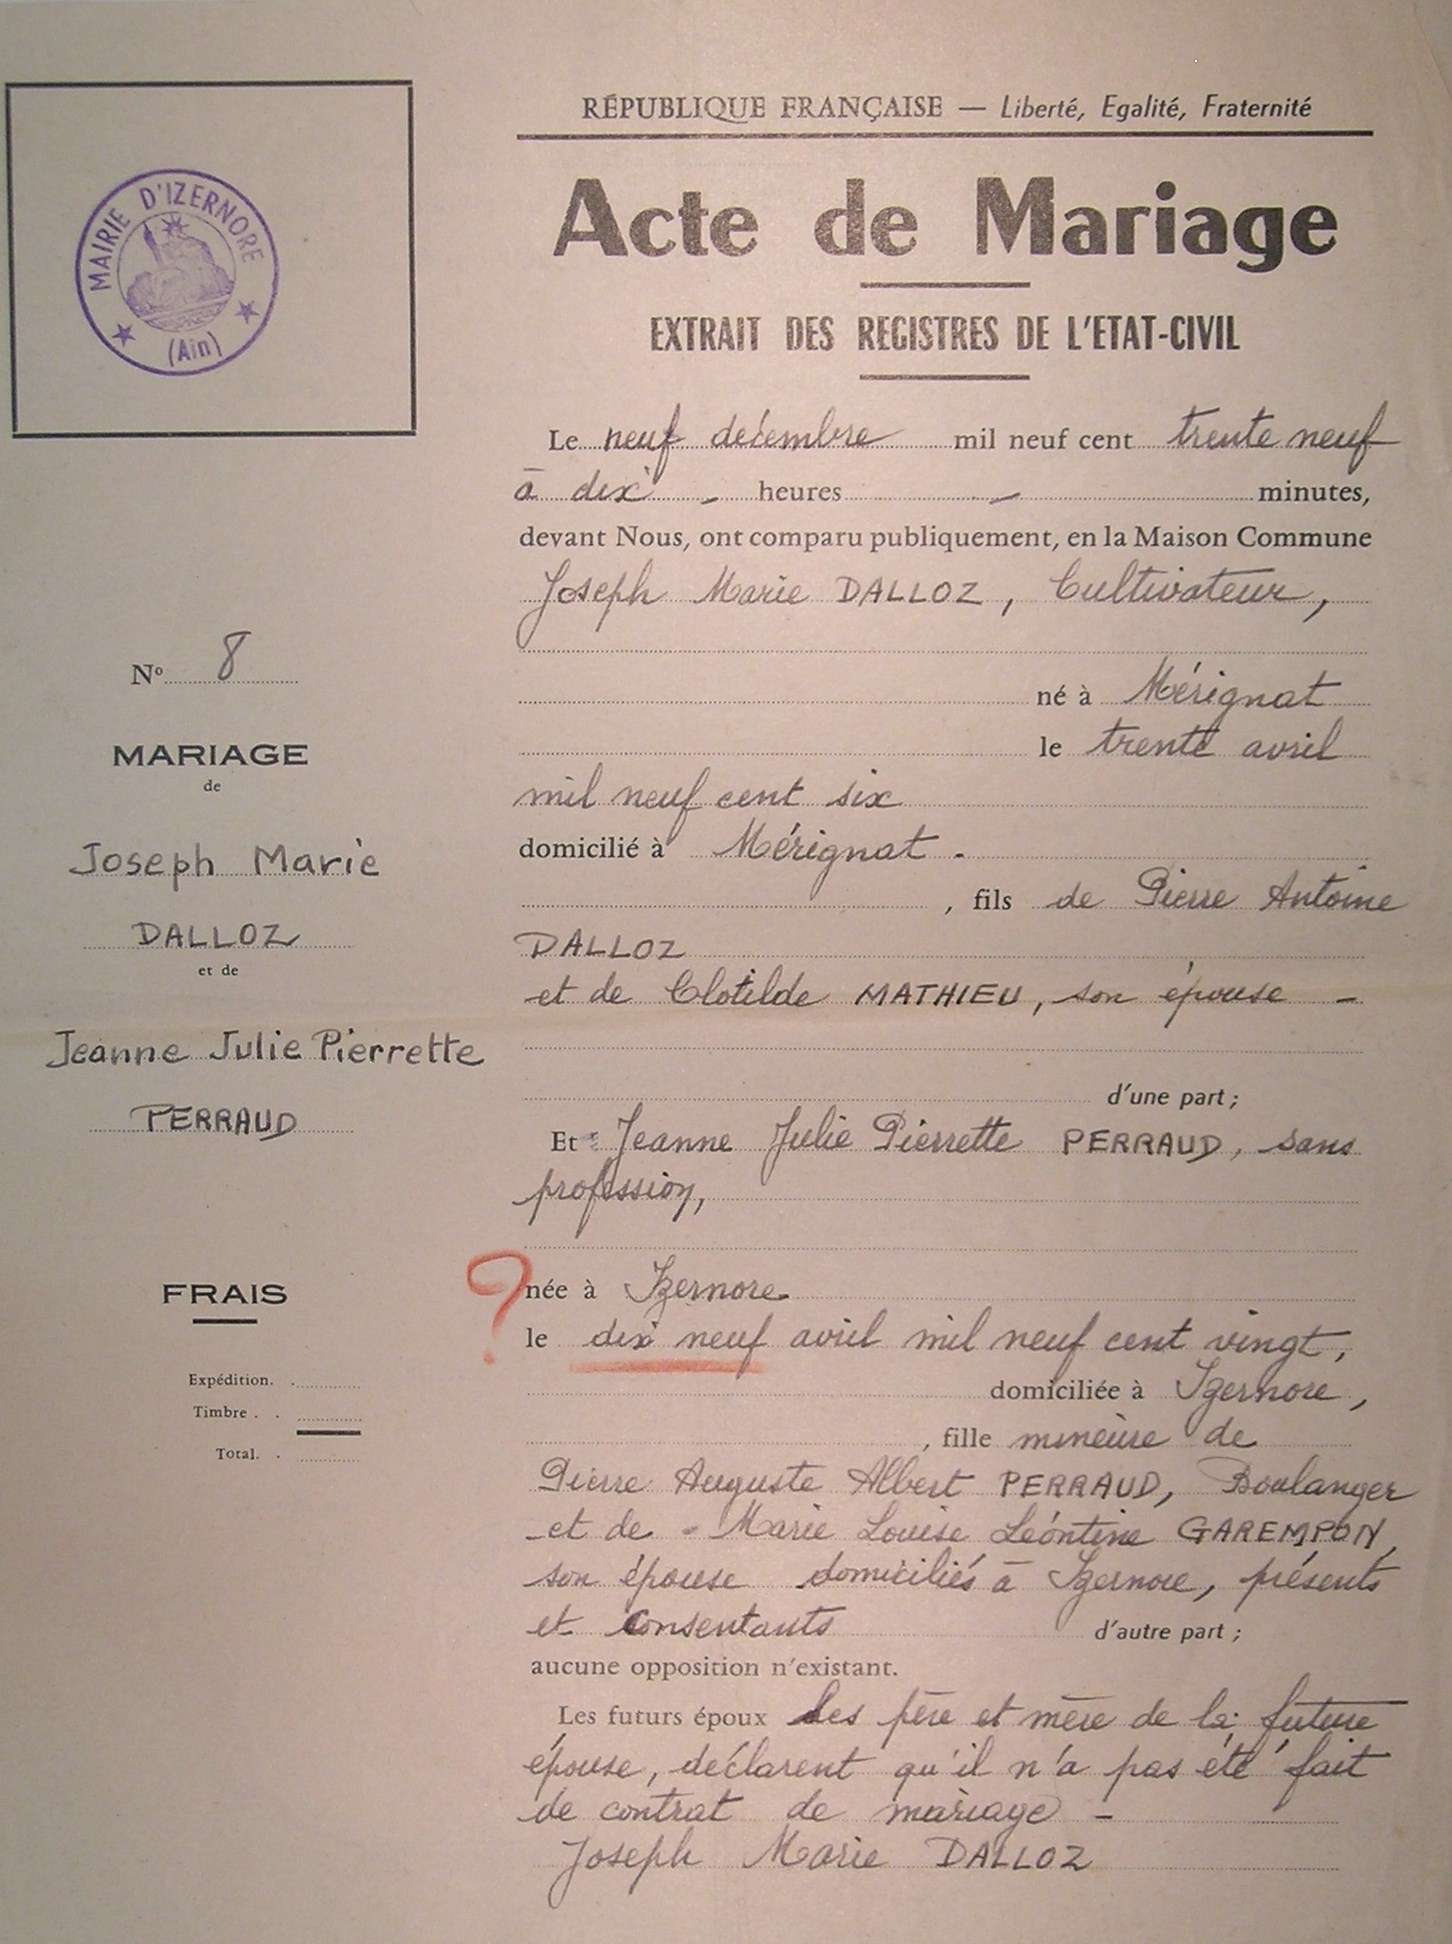 MAIRIE D'IZERNORE
(Ain)
RÉPUBLIQUE FRANÇAISE — Liberté, Egalité, Fraternité
Acte de Mariage
EXTRAIT DES REGISTRES DE L'ETAT-CIVIL
Le neuf décembre mil neuf cent trente neuf
à dix - heures - minutes,
devant Nous, ont comparu publiquement, en la Maison Commune
Joseph Marie DALLOZ, Cultivateur,
né à Mérignat
le trente avril
mil neuf cent six
domicilié à Mérignat -
, fils de Pierre Antoine
DALLOZ
et de Clotilde MATHIEU, son épouse -
d'une part ;
Et Jeanne Julie Pierrette PERRAUD, sans
profession,
? née à Izernore
le dix neuf avril mil neuf cent vingt,
domiciliée à Izernore,
, fille mineure de
Pierre Auguste Albert PERRAUD, Boulanger
et de - Marie Louise Léontine GAREMPON,
son épouse domiciliés à Izernore, présents
et consentants d'autre part ;
aucune opposition n'existant.
Les futurs époux les père et mère de la future
épouse, déclarent qu'il n'a pas été fait
de contrat de mariage -
Joseph Marie DALLOZ
Nº 8
MARIAGE
de
Joseph Marie
DALLOZ
et de
Jeanne Julie Pierrette
PERRAUD
FRAIS
Expédition. .
Timbre . .
Total. .